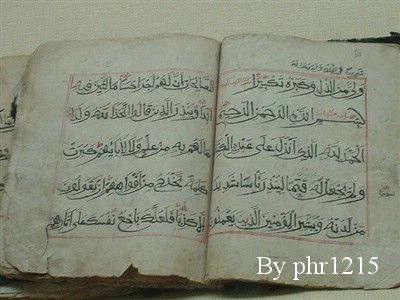 ولي من الذل وكبره تكبيرا
بسم الله الرحمن الرحيم
الحمد لله الذي انزل على عبده الكتاب
ولم يجعل له قيما لينذر باسا شديدا
من لدنه ويبشر المؤمنين الذين يعملون
الصالحات ان لهم اجرا حسنا ماكثين فيه
ابدا وينذر الذين قالوا اتخذ الله ولدا
ما لهم به من علم ولا لابائهم كبرت
كلمة تخرج من افواههم ان يقولون
الا كذبا فلعلك باخع نفسك على اثارهم
By phr1215